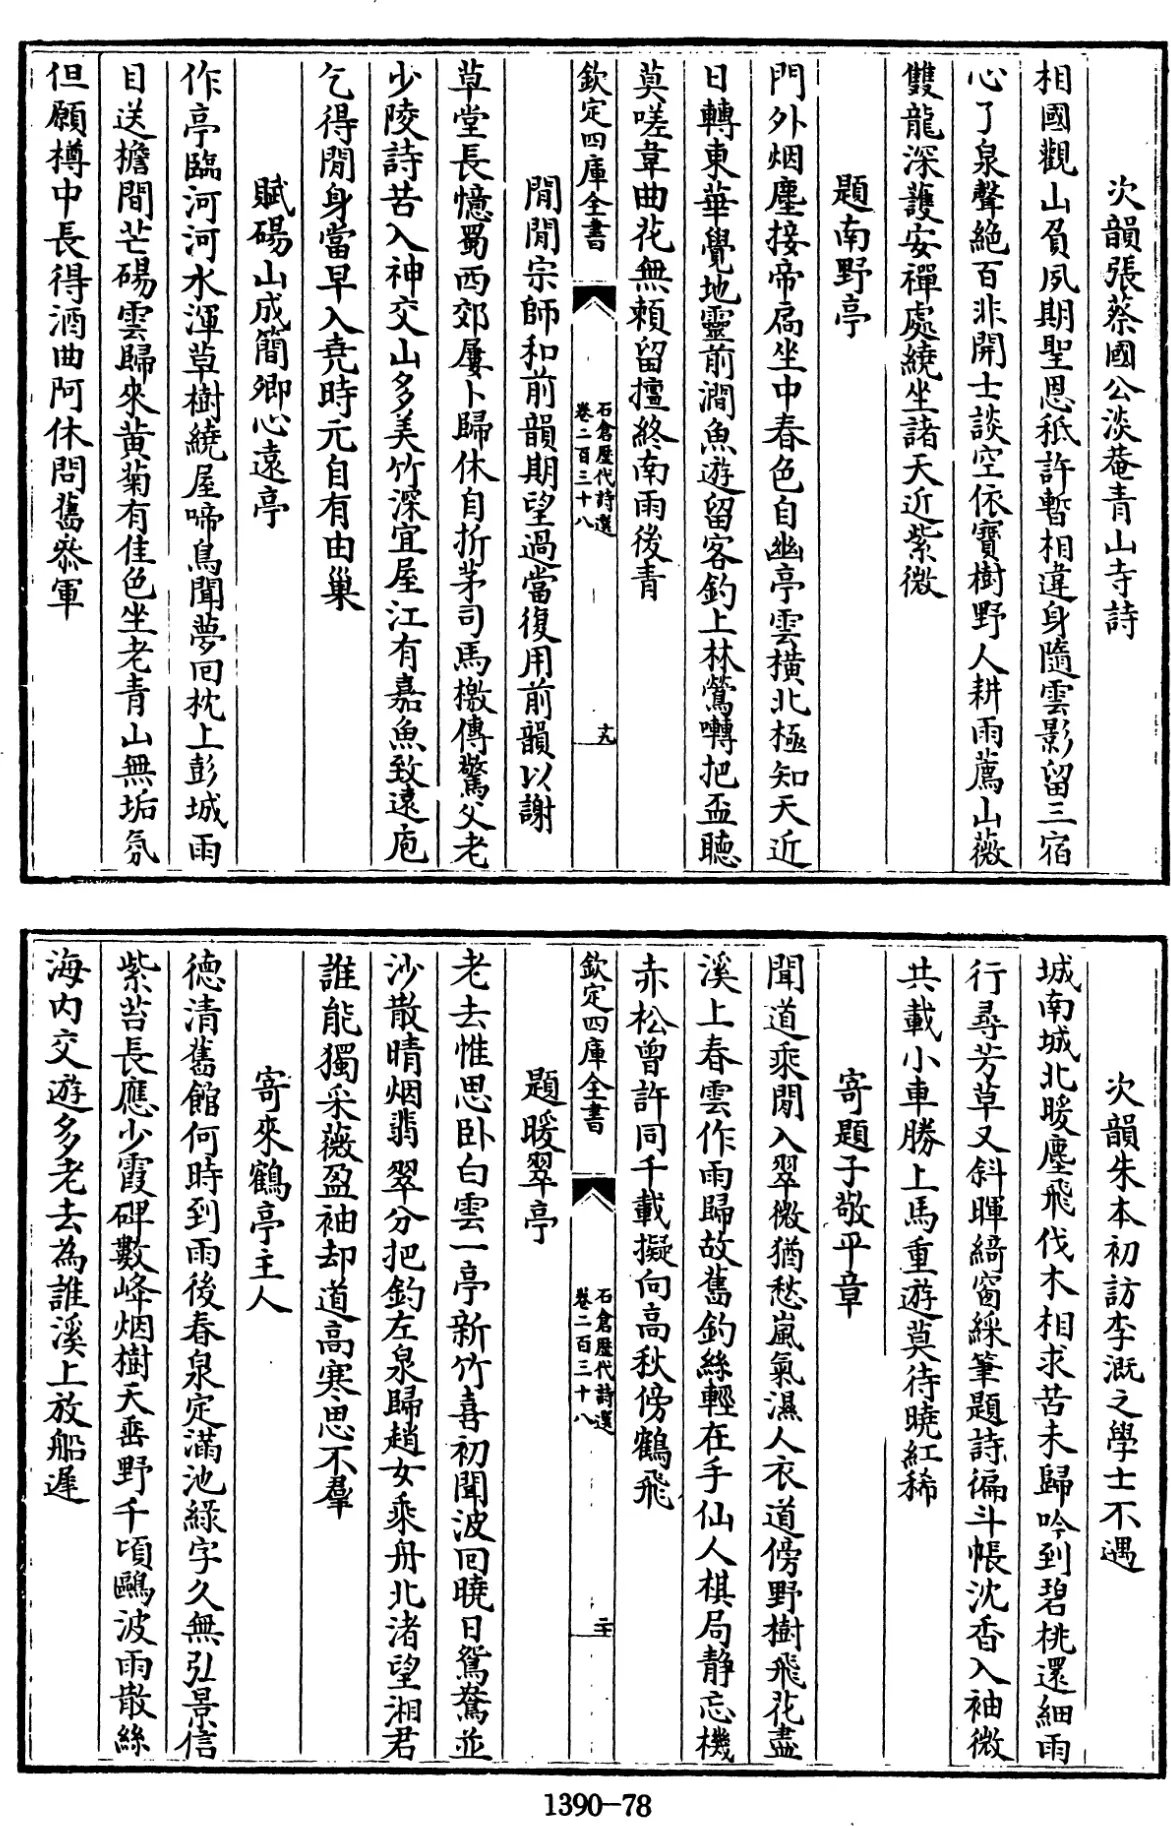 次韻張蔡國公淡菴青山寺詩
相國觀山負夙期聖恩秪許暫相違身隨雲影留三宿
心了泉聲絶百非開士談空依寳樹野人耕雨薦山薇
雙龍深護安禪處繞坐諸天近紫微
題南野亭
門外烟塵接帝扃坐中春色自幽亭雲横北極知天近
日轉東華覺地靈前澗魚遊留客釣上林鶯囀把盃聽
莫嗟韋曲花無賴留擅終南雨後青
欽定四庫全書
石倉歷代詩選
卷二百三十八
十九
閒閒宗師和前韻期望過當復用前韻以謝
草堂長憶蜀西郊屢卜歸休自折茅司馬檄傳驚父老
少陵詩苦入神交山多美竹深宜屋江有嘉魚致遠庖
乞得閒身當早入堯時元自有由巢
賦碭山成簡卿心遠亭
作亭臨河河水渾草樹繞屋啼鳥聞夢回枕上彭城雨
目送檐間芒碭雲歸來黄菊有佳色坐老青山無垢氛
但願樽中長得酒曲阿休問舊叅軍
次韻朱本初訪李溉之學士不遇
城南城北暖塵飛伐木相求苦未歸吟到碧桃還細雨
行尋芳草又斜暉綺窗綵筆題詩徧斗帳沈香入袖微
共載小車勝上馬重遊莫待曉紅稀
寄題子敬平章
聞道乘閒入翠微猶愁嵐氣濕人衣道傍野樹飛花盡
溪上春雲作雨歸故舊釣絲輕在手仙人棋局静忘機
赤松曾許同千載擬向高秋傍鶴飛
欽定四庫全書
石倉歷代詩選
卷二百三十八
二十
題暖翠亭
老去惟思卧白雲一亭新竹喜初聞波回曉日鴛鴦並
沙散晴烟翡翠分把釣左泉歸趙女乘舟北渚望湘君
誰能獨采薇盈袖却道高寒思不羣
寄來鶴亭主人
德清舊館何時到雨後春泉定滿池緑字久無弘景信
紫苔長應少霞碑數峰烟樹天垂野千頃鷗波雨散絲
海内交遊多老去為誰溪上放船遲
1390—78